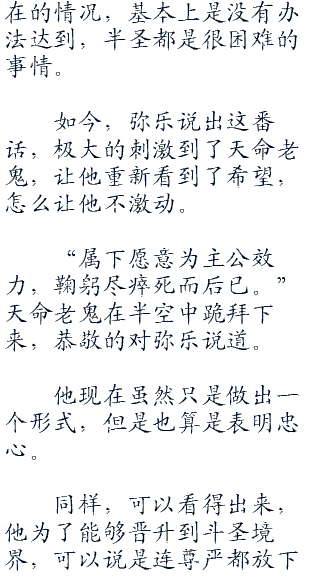 在的情况，基本上是没有办
法达到，半圣都是很困难的
事情。
如今，弥乐说出这番
话，极大的刺激到了天命老
鬼，让他重新看到了希望，
怎么让他不激动。
“属下愿意为主公效
力，鞠躬尽瘁死而后已。”
天命老鬼在半空中跪拜下
来，恭敬的对弥乐说道。
他现在虽然只是做出一
个形式，但是也算是表明忠
心。
同样，可以看得出来，
他为了能够晋升到斗圣境
界，可以说是连尊严都放下